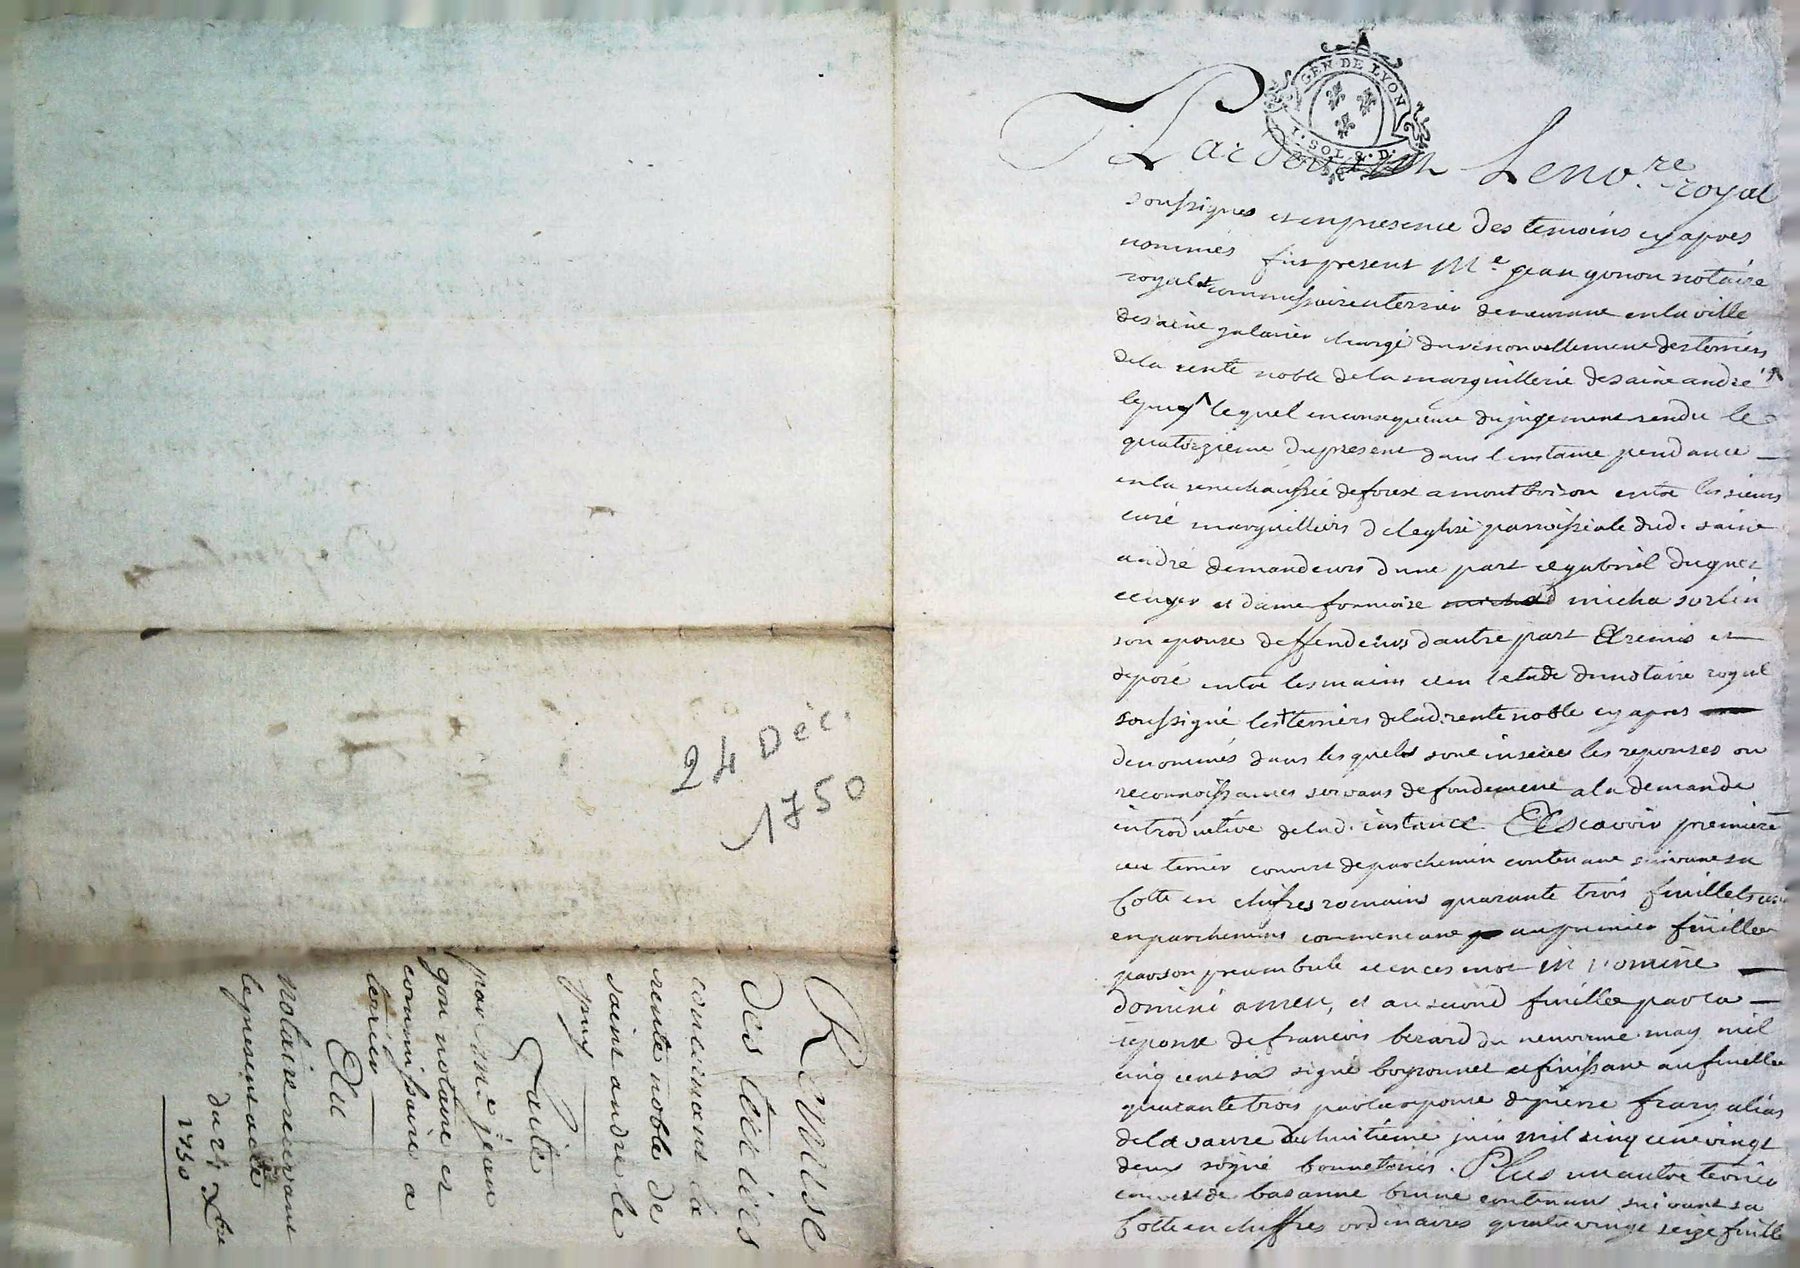 GEN. DE LYON
1. SOL 8. D.
Pardevant Le no.re royal
soussigné et en presence des temoins cy apres
nommés fut present Me. jean gonon notaire
royal et commissaire a terrier demeurant en la ville
de saint galmier chargé du renouvellement des terriers
de la rente noble de la marguillerie de saint andré
le puy lequel en consequence du jugement rendu le
quatorzieme du present dans l instance pendante
en la senechaussée de forest a montbrison entre les sieurs
curé marguilliers de l eglise parroissiale dud. saint
andré demandeurs d une part et gabriel duguet
ecuyer et dame francoise micha sorlin
son epouse deffendeurs d autre part A remis et
deposé entre les mains et en l etude du notaire royal
soussigné les terriers de lad rente noble cy apres
denommés dans lesquels sont inserées les reponses ou
reconnoissances servans de fondement a la demande
introductive de lad. instance. A Scavoir premiere
un terrier couvert de parchemin contenant suivant sa
Cotte en chifres romains quarante trois feuillets
en parchemins commencant au premier feuillet
par son preambule et en ces mots in nomine
domini amen, et au second feuillet par la
reponse de francois berard du neuvieme may mil
cinq cent six signé boyronnet et finissant au feuillet
quarante trois par la reponse de pierre frary alias
de la vaure du huitieme juin mil cinq cent vingt
deux signé bonnetonis. Plus un autre terrier
couvert de basanne brune contenant suivant sa
Cotte en chiffres ordinaires quatre vingt seize feuille
24 Déc.
1750
Remise
Des terriers
concernant la
rente noble de
saint andré le
puy
Faite
par me jean
gon notaire et
commissaire a
terrier
Au
notaire recevant
le present acte
du 24 Xbre
1750